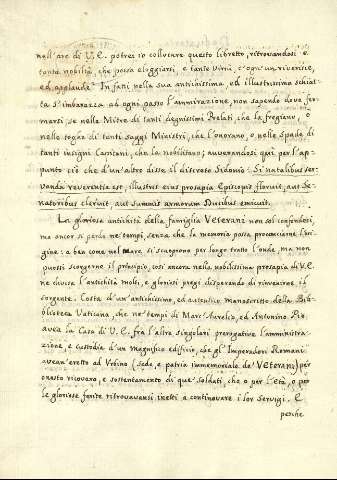 nell'arc di V.E. potrei io collocare questo libretto, ritrovandosi e
tanta nobiltà, che possa eloggiarsi, e tante virtù, c'ogn'un riverisce,
ed applaude. In fati nella sua antichissima, ed illustrissima schiat-
ta s'imbarazza ad ogni passo l'ammirazione, non sapendo dove fer-
marsi, se nelle Mitre di tanti degnissimi Prelati, che la fregiano, o
nelle toghe di tanti saggi Ministri, che l'onorano, o nelle spade di
tanti insigni Capitani, che la nobilitano; auverandosi quì per l'ap-
punto ciò che d'un'altro disse il discreto Sidonio. Si natalibus ser-
vanda reverentia est, illustris eius prosapia Episcopis floruit, aut Se-
natoribus claruit aut Summis armorum Ducibus emicuit.
La gloriosa antichità della famiglia Veterani non sol confondesi,
ma ancor si perde ne' tempi, senza che la memoria possa pronunciarne l'ori-
gine: a ben come nel mare si scuoprono per lungo tratto l'onde, ma non
puossi scorgerne il principio, così ancora nella nobilissima prosapia di V.E.
ne ciuisa l'antichità molti, e gloriosi pregi disperando di rinvenirne il
sorgente. Costa d'un'antichissimo, ed autentico Manoscritto della Bib-
blioteca Vaticana, che ne' tempi di Marc'Aurelio, ed Antonino Pio
avea la Casa di V.E. frà l'altre singolari prerogative l'amministra-
zione, e custodia d'un magnifico edificio, che gl'Imperadori Romani
avean'eretto ad Urbino (sede, e patria immemoriale de' Veterani) per
onesto ricovero, e sostentamento di que' soldati, che o per l'età, o per
le gloriose ferite ritrovavansi inetti a continovare i lor servigi. E
perche